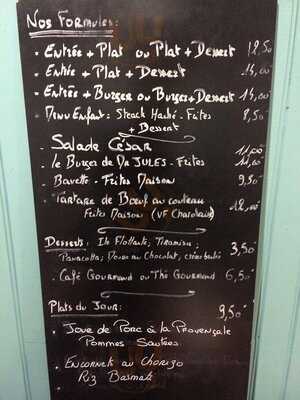 Nos Formules:
• Entrée + Plat ou Plat + Dessert 12,50
• Entrée + Plat + Dessert 15,00
• Entrée + Burger ou Burger + Dessert 15,00
• Menu Enfant: Steack Haché - Frites 8,50
+ Dessert
. Salade César 11,00
. le Burger de Da JULES - Frites 11,00
. Bavette - Frites Maison 9,50
. Tartare de Bœuf au couteau
Frites Maison (VF Charolaise) 12,00
Desserts: Ile Flottante; Tiramisu;
Panacotta; Moux au Chocolat, crème brulée 3,50
. Café Gourmand ou Thé Gourmand 6,50
Plats du Jour: 9,50
. Joue de Porc à la Provençale
Pommes Sautées
. Encornets au Chorizo
Riz Basmati